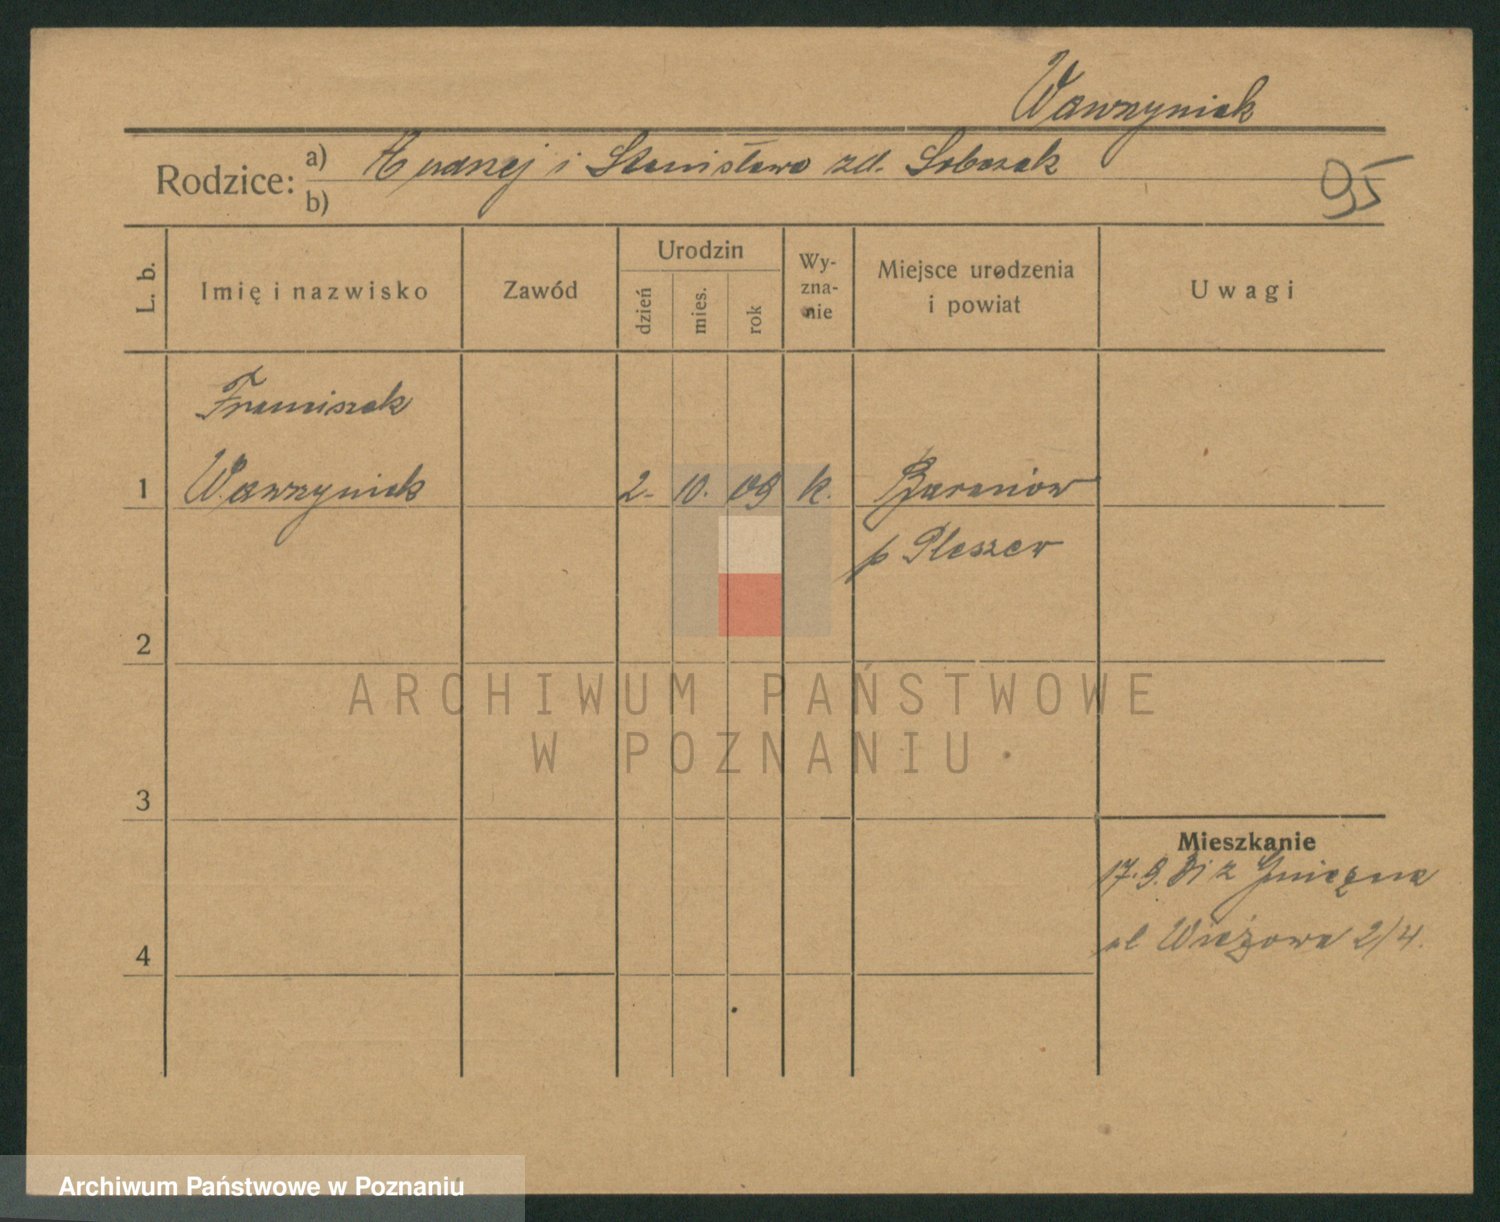 Wawrzyniak
Rodzice: a) Andrzej i Stanisława zd. Sobczak
b)
95
L. b.
Imię i nazwisko
Zawód
Urodzin
dzień
mies.
rok
Wy-
zna-
nie
Miejsce urodzenia
i powiat
Uwagi
Franciszek
1 Wawrzyniak 2. 10. 09 k. Baranów
p Pleszew
2
ARCHIWUM PAŃSTWOWE
W POZNANIU
3
Mieszkanie
17.9.31 z Gniezna
ul Wieżowa 2/4.
4
Archiwum Państwowe w Poznaniu